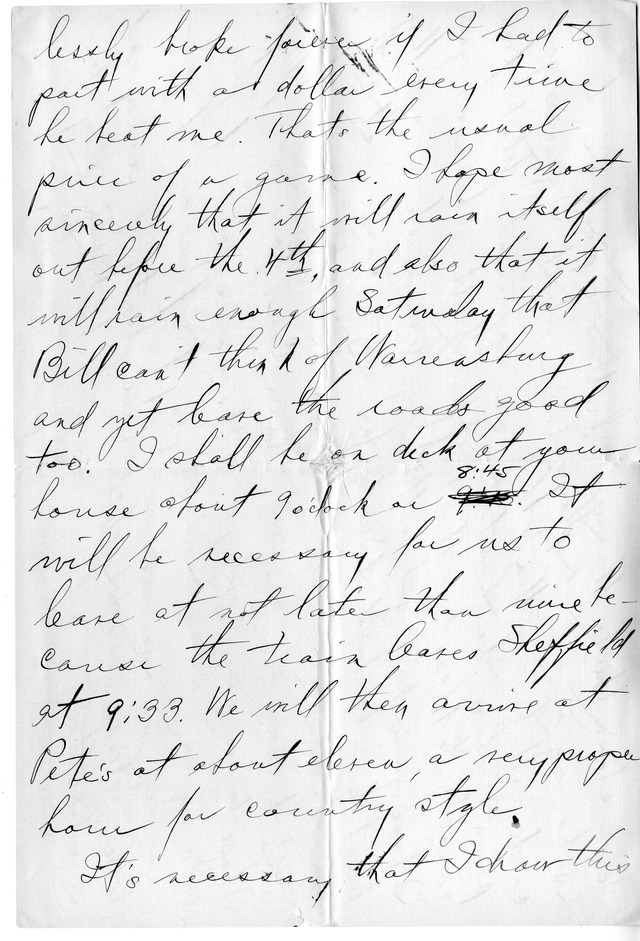 lessly broke forever if I had to
part with a dollar every time
he beat me. That's the usual
price of a game. I hope most
sincerely that it will rain itself
out before the 4th, and also that it
will rain enough Saturday that
Bill can't think of Warrensburg
and yet leave the roads good
too. I shall be on deck at your
house about 9 o'clock or 8:45. It
will be necessary for us to
leave at not later than nine be-
cause the train leaves Sheffield
at 9:33. We will then arrive at
Pete's at about eleven, a very proper
hour for country style.
It's necessary that I draw this